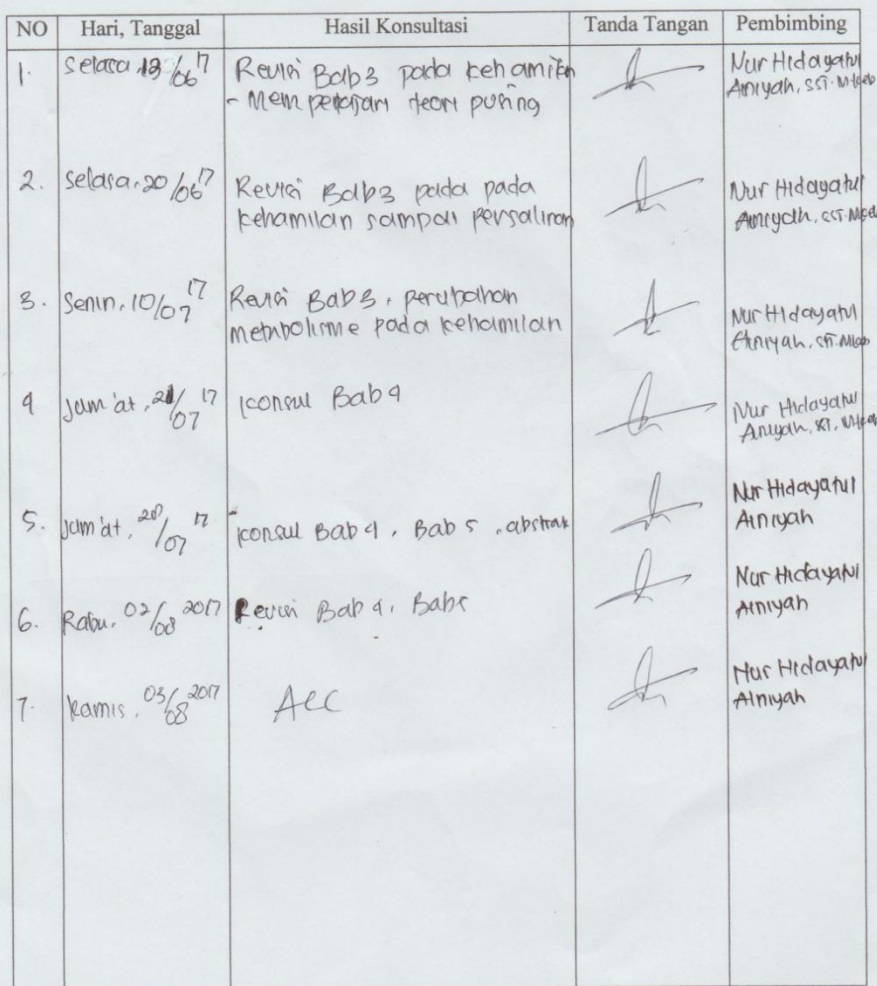 NO Hari, Tanggal Hasil Konsultasi Tanda Tangan Pembimbing
1. Selasa 13/06 17 Revisi Bab 3 pada kehamilan Nur Hidayatul
- Mempelajari teori pusing Ainiyah, SST. M.Keb
2. Selasa, 20/06 17 Revisi Bab 3 pada pada Nur Hidayatul
kehamilan sampai persalinan Ainiyah, SST. M.Keb
3. Senin, 10/07 17 Revisi Bab 3, perubahan Nur Hidayatul
metabolisme pada kehamilan Ainiyah, SST. M.Keb
4 Jum'at, 21/07 17 konsul Bab 4 Nur Hidayatul
Ainiyah, SST, M.Keb
5. Jum'at, 28/07 17 konsul Bab 4, Bab 5, abstrak Nur Hidayatul
Ainiyah
6. Rabu, 02/08 2017 Revisi Bab 4, Bab 5 Nur Hidayatul
Ainiyah
7. Kamis, 03/08 2017 ACC Nur Hidayatul
Ainiyah